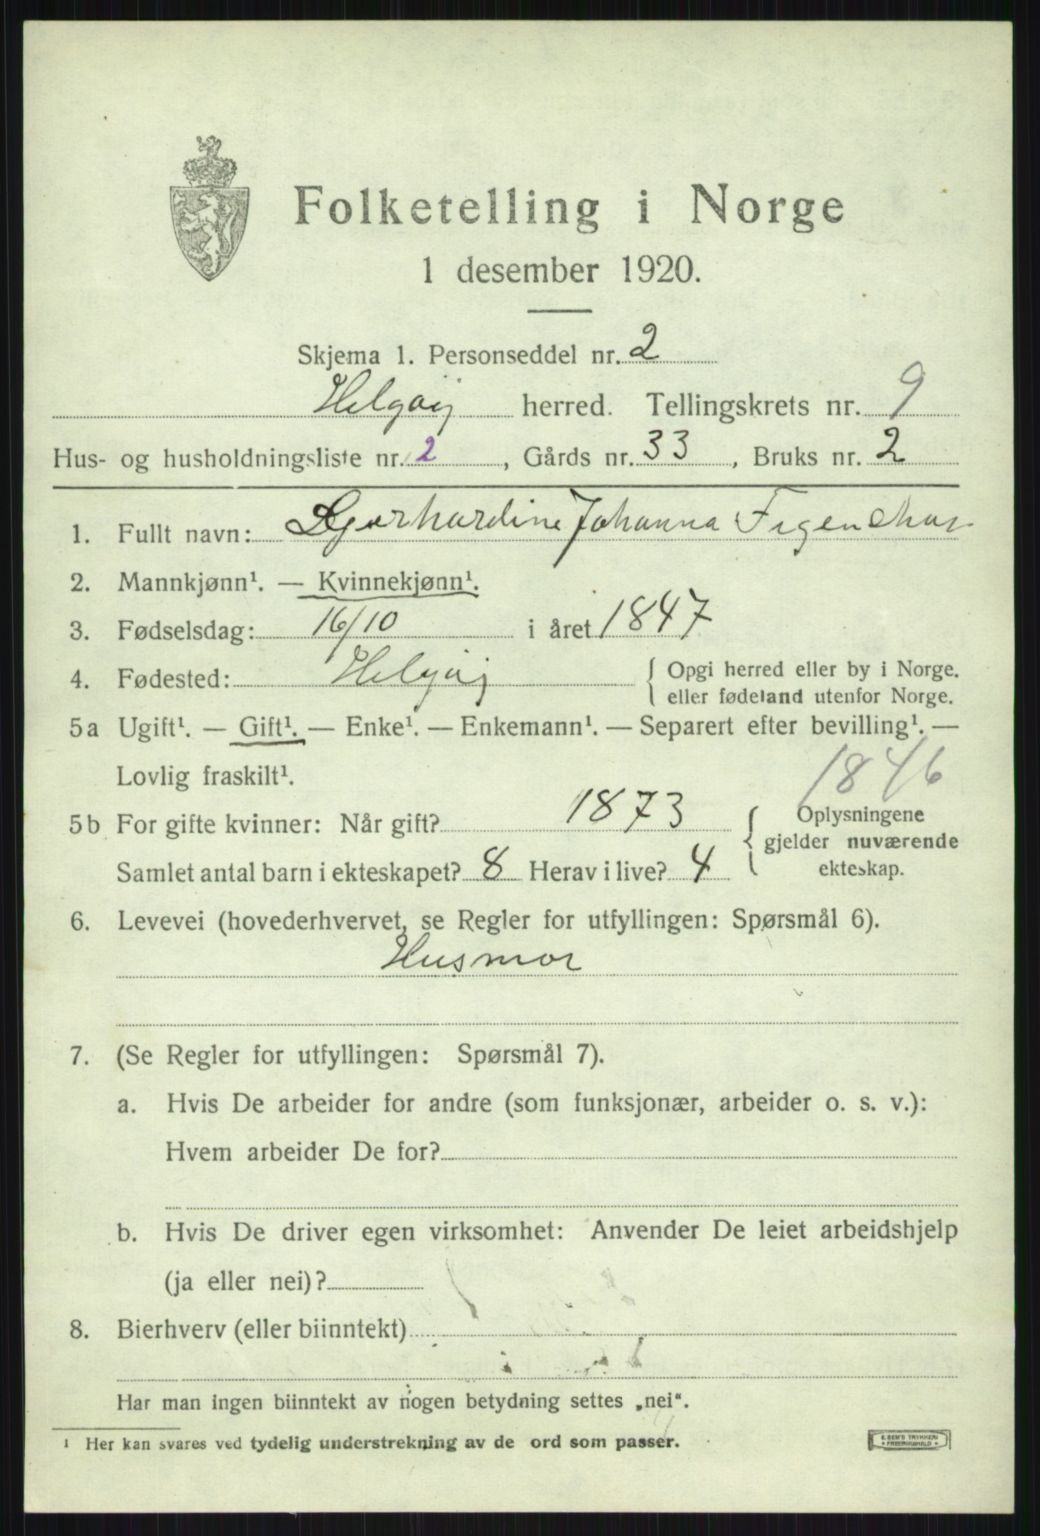 Folketelling i Norge
1 desember 1920.
Skjema 1. Personseddel nr. 2
Helgøy herred. Tellingskrets nr. 9
Hus- og husholdningsliste nr. 2, Gårds nr. 33, Bruks nr. 2
1. Fullt navn: Gjerhardine Johanna Figenchau
2. Mannkjønn¹. — Kvinnekjønn¹.
3. Fødselsdag: 16/10 i året 1847
4. Fødested: Helgøy { Opgi herred eller by i Norge.
eller fødeland utenfor Norge.
5a Ugift¹. — Gift¹. — Enke¹. — Enkemann¹. — Separert efter bevilling¹. —
Lovlig fraskilt¹.
1846
5b For gifte kvinner: Når gift? 1873 { Oplysningene
gjelder nuværende
Samlet antal barn i ekteskapet? 8 Herav i live? 4 ekteskap.
6. Levevei (hovederhvervet, se Regler for utfyllingen: Spørsmål 6).
Husmor
7. (Se Regler for utfyllingen: Spørsmål 7).
a. Hvis De arbeider for andre (som funksjonær, arbeider o. s. v.):
Hvem arbeider De for?
b. Hvis De driver egen virksomhet: Anvender De leiet arbeidshjelp
(ja eller nei)?
8. Bierhverv (eller biinntekt)
Har man ingen biinntekt av nogen betydning settes „nei“.
¹ Her kan svares ved tydelig understrekning av de ord som passer.